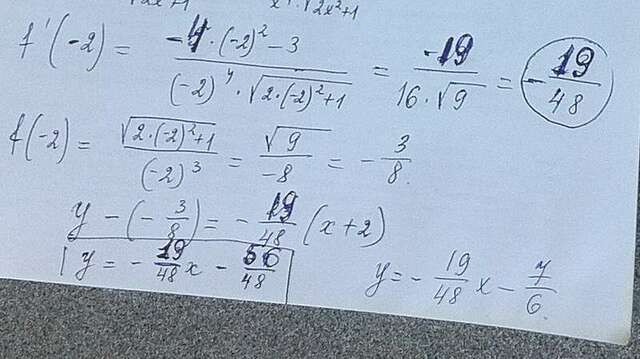 x √2x²+1
f'(-2) = (-4·(-2)²-3)/((-2)⁴·√(2·(-2)²+1)) = -19/(16·√9) = -19/48
f(-2) = √(2·(-2)²+1)/(-2)³ = √9/-8 = -3/8
y - (-3/8) = -19/48 (x+2)
y = -19/48 x - 56/48
y = -19/48 x - 7/6